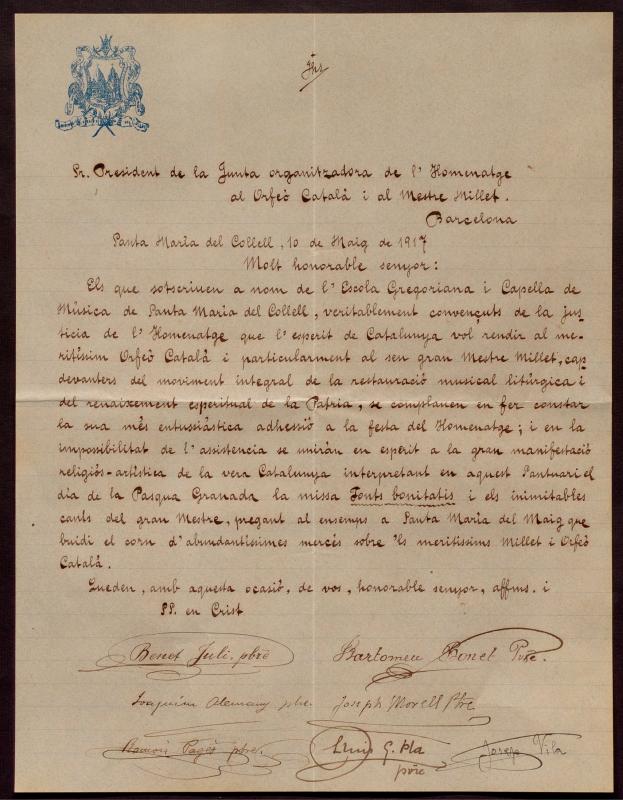 Jhs
Sr. President de la Junta organitzadora de l' Homenatge
al Orfeó Català i al Mestre Millet.
Barcelona
Santa Maria del Collell, 10 de Maig de 1917
Molt honorable senyor:
Els que sotscriuen a nom de l' Escola Gregoriana i Capella de
Música de Santa Maria del Collell, veritablement convençuts de la jus
ticia de l' Homenatge que l' esperit de Catalunya vol rendir al me-
ritíssim Orfeó Català i particularment al seu gran Mestre Millet, cap
devanters del moviment integral de la restauració musical litúrgica i
del renaixement esperitual de la Patria, se complauen en fer constar
la sua més entussiástica adhessió a la festa del Homenatge; i en la
impossibilitat de l' assistencia se uniràn en esperit a la gran manifestació
religiós-artística de la vera Catalunya interpretant en aquest Santuari el
dia de la Pasqua Granada la missa Fonts bonitatis i els inimitables
cants del gran Mestre, pregant al ensemps a Santa Maria del Maig que
buidi el corn d' abundantíssimes mercès sobre 'ls meritíssims Millet i Orfeó
Català.
Queden, amb aquesta ocasió, de vos, honorable senyor, affms. i
SS. en Crist
Benet Juli. pbre
Bartomeu Bonet Pvre.
Joaquim Alemany pbre.
Joseph Morell Pbre.
Ramón Pagès pbre.
Lluis G. Pla
pvre
Josep Vila